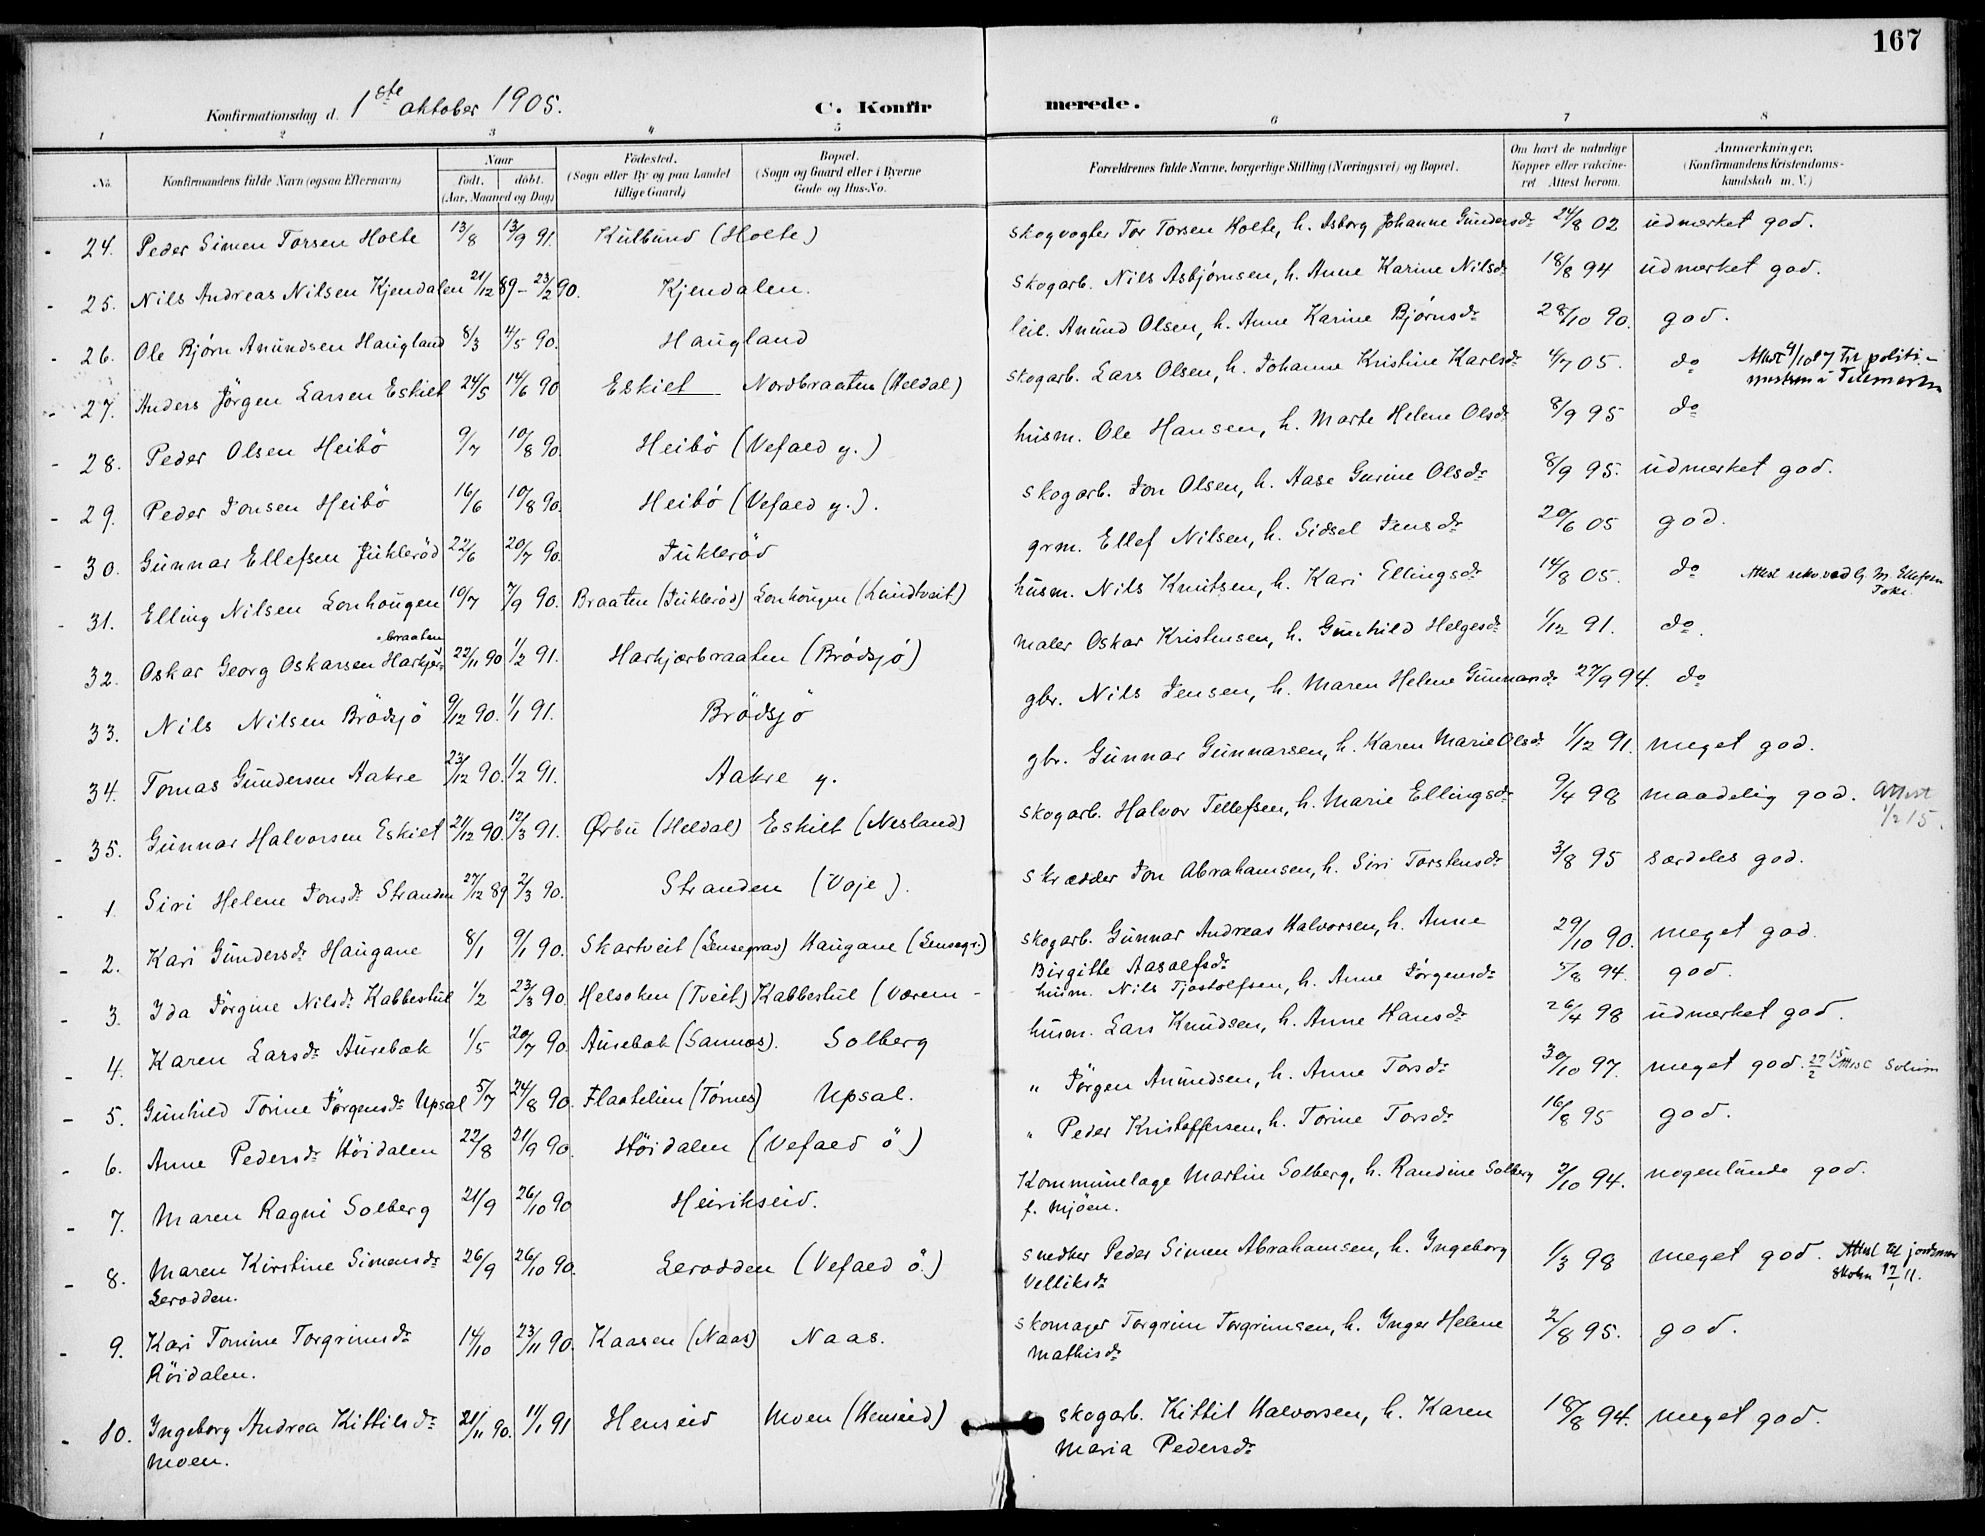 167
Konfirmationsdag d. 1ste oktober 1905. C. Konfirmerede.
1 2 3 4 5 6 7 8
No. Konfirmandens fulde Navn (ogsaa Efternavn) Naar født, døbt. (Aar, Maaned og Dag) Fødested. (Sogn eller By og paa Landet tillige Gaard) Bopæl. (Sogn og Gaard eller i Byerne Gade og Hus-No. Forældrenes fulde Navne, borgerlige Stilling (Næringsvei) og Bopæl. Om havt de naturlige Kopper eller vakcineret Attest herom. Anmærkninger, (Konfirmandens Kristendomskundskab m. V.)
24. Peder Simen Torsen Holte 13/8 13/9 91. Kulbund (Holte) skogvogter Tor Torsen Holte, h. Asborg Johanne Gundersdr 24/8 02 udmerket god.
25. Nils Andreas Nilsen Kjendalen 21/12 89 - 23/2 90. Kjendalen. skogarb. Nils Asbjørnsen, h. Anne Karine Nilsdr 18/8 94 udmerket god.
26. Ole Bjørn Anundsen Haugland 8/3 4/5 90. Haugland leil. Anund Olsen, h. Anne Karine Bjørnsdr 28/10 90. god.
27. Anders Jörgen Larsen Eskilt 24/5 14/6 90 Eskilt Nordbraaten (Heldal) skogarb. Lars Olsen, h. Johanne Kristine Karlsdr 4/7 05. do Attest til politi-
mesteren i Telemarken
28. Peder Olsen Heibö 9/7 10/8 90. Heibö (Vefald y.) husm. Ole Hansen, h. Marte Helene Olsdr 8/9 95 do
29. Peder Jonsen Heibö 16/6 10/8 90. Heibö (Vefald y.). skogarb. Jon Olsen, h. Aase Gurine Olsdr 8/9 95. udmerket god.
30. Gunnar Ellefsen Juklerød 22/6 20/7 90. Juklerød grm. Ellef Nilsen, h. Sidsel Jensdr 20/6 05 god.
31. Elling Nilsen Lonhougen 10/7 7/9 90. Braaten (Juklerød) Lonhougen (Lundtveit) husm. Nils Knutsen, h. Kari Ellingsdr 14/8 05. do Attest ved G. M. Ellefsen
Toke
braaten
32. Oskar Georg Oskarsen Harkjær- 22/11 90 1/2 91. Harkjærbraaten (Brödsjö) maler Oskar Kristensen, h. Gunhild Helgesdr 1/12 91. do.
33. Nils Nilsen Brödsjö 9/12 90. 1/1 91. Brödsjö gbr. Nils Jensen, h. Maren Helene Gunnarsdr 27/9 94. do
34. Tomas Gundersen Aakre 23/12 90. 1/2 91. Aakre y. gbr. Gunnar Gunnarsen, h. Karen Marie Olsdr 1/12 91. meget god.
35. Gunnar Halvorsen Eskilt 21/12 90. 12/3 91. Ørbu (Heldal) Eskilt (Nesland) skogarb. Halvor Tellefsen, h. Marie Ellingsdr 9/4 98 maadelig god. Attest
1/2 15.
1. Siri Helene Jonsdr Stranden 27/12 89 2/3 90. Stranden (Voje). skrædder Jon Abrahamsen, h. Siri Torstensdr 3/8 95 særdeles god.
2. Kari Gundersdr Haugane 8/1 9/1 90. Skartveit (Sensegrav) Haugane (Sensegr.) skogarb. Gunnar Andreas Halvorsen, h. Anne 29/10 90. meget god.
Birgitte Aasolfsdr
3. Ida Jörgine Nilsdr Kabbestul 1/2 23/3 90. Helsoken (Tveit) Kabbestul (Værem - husm. Nils Tjostolfsen, h. Anne Jörgensdr 5/8 94. god.
4. Karen Larsdr Aurebæk 1/5 20/7 90. Aurebæk (Sannæs). Solberg husm. Lars Knudsen, h. Anne Hansdr 26/4 98 udmerket god.
5. Gunhild Torine Jörgensdr Upsal 5/7 24/8 90. Flaatelien (Törnes) Upsal. " Jörgen Anundsen, h. Anne Torsdr 30/10 97. meget god. 27/2 15 Attest Solum
6. Anne Pedersdr Höidalen 22/8 21/9 90. Höidalen (Vefald ö) " Peder Kristoffersen, h. Torine Torsdr 16/8 95 god.
7. Maren Ragni Solberg 21/9 26/10 90 Heirikseid. Kommunelæge Martin Solberg, h. Randine Solberg 3/10 94. nogenlunde god.
f. Mjöen.
8. Maren Kirstine Simensdr 26/9 26/10 90. Lerodden (Vefald ö.) snedker Peder Simen Abrahamsen, h. Ingeborg 1/3 98 meget god. Attest til jordmor
Lerodden. Velliksdr skolen 17/1 11.
9. Kari Tomine Torgrimsdr 14/10 23/11 90. Kaasen (Naas) Naas. skomager Torgrim Torgrimsen, h. Inger Helene 2/8 95. god.
Röidalen. Mathisdr
10. Ingeborg Andrea Kittilsdr 21/11 90. 11/1 91 Henseid Moen (Henseid) skogarb. Kittil Halvorsen, h. Karen 18/8 94. meget god.
Moen. Maria Pedersdr